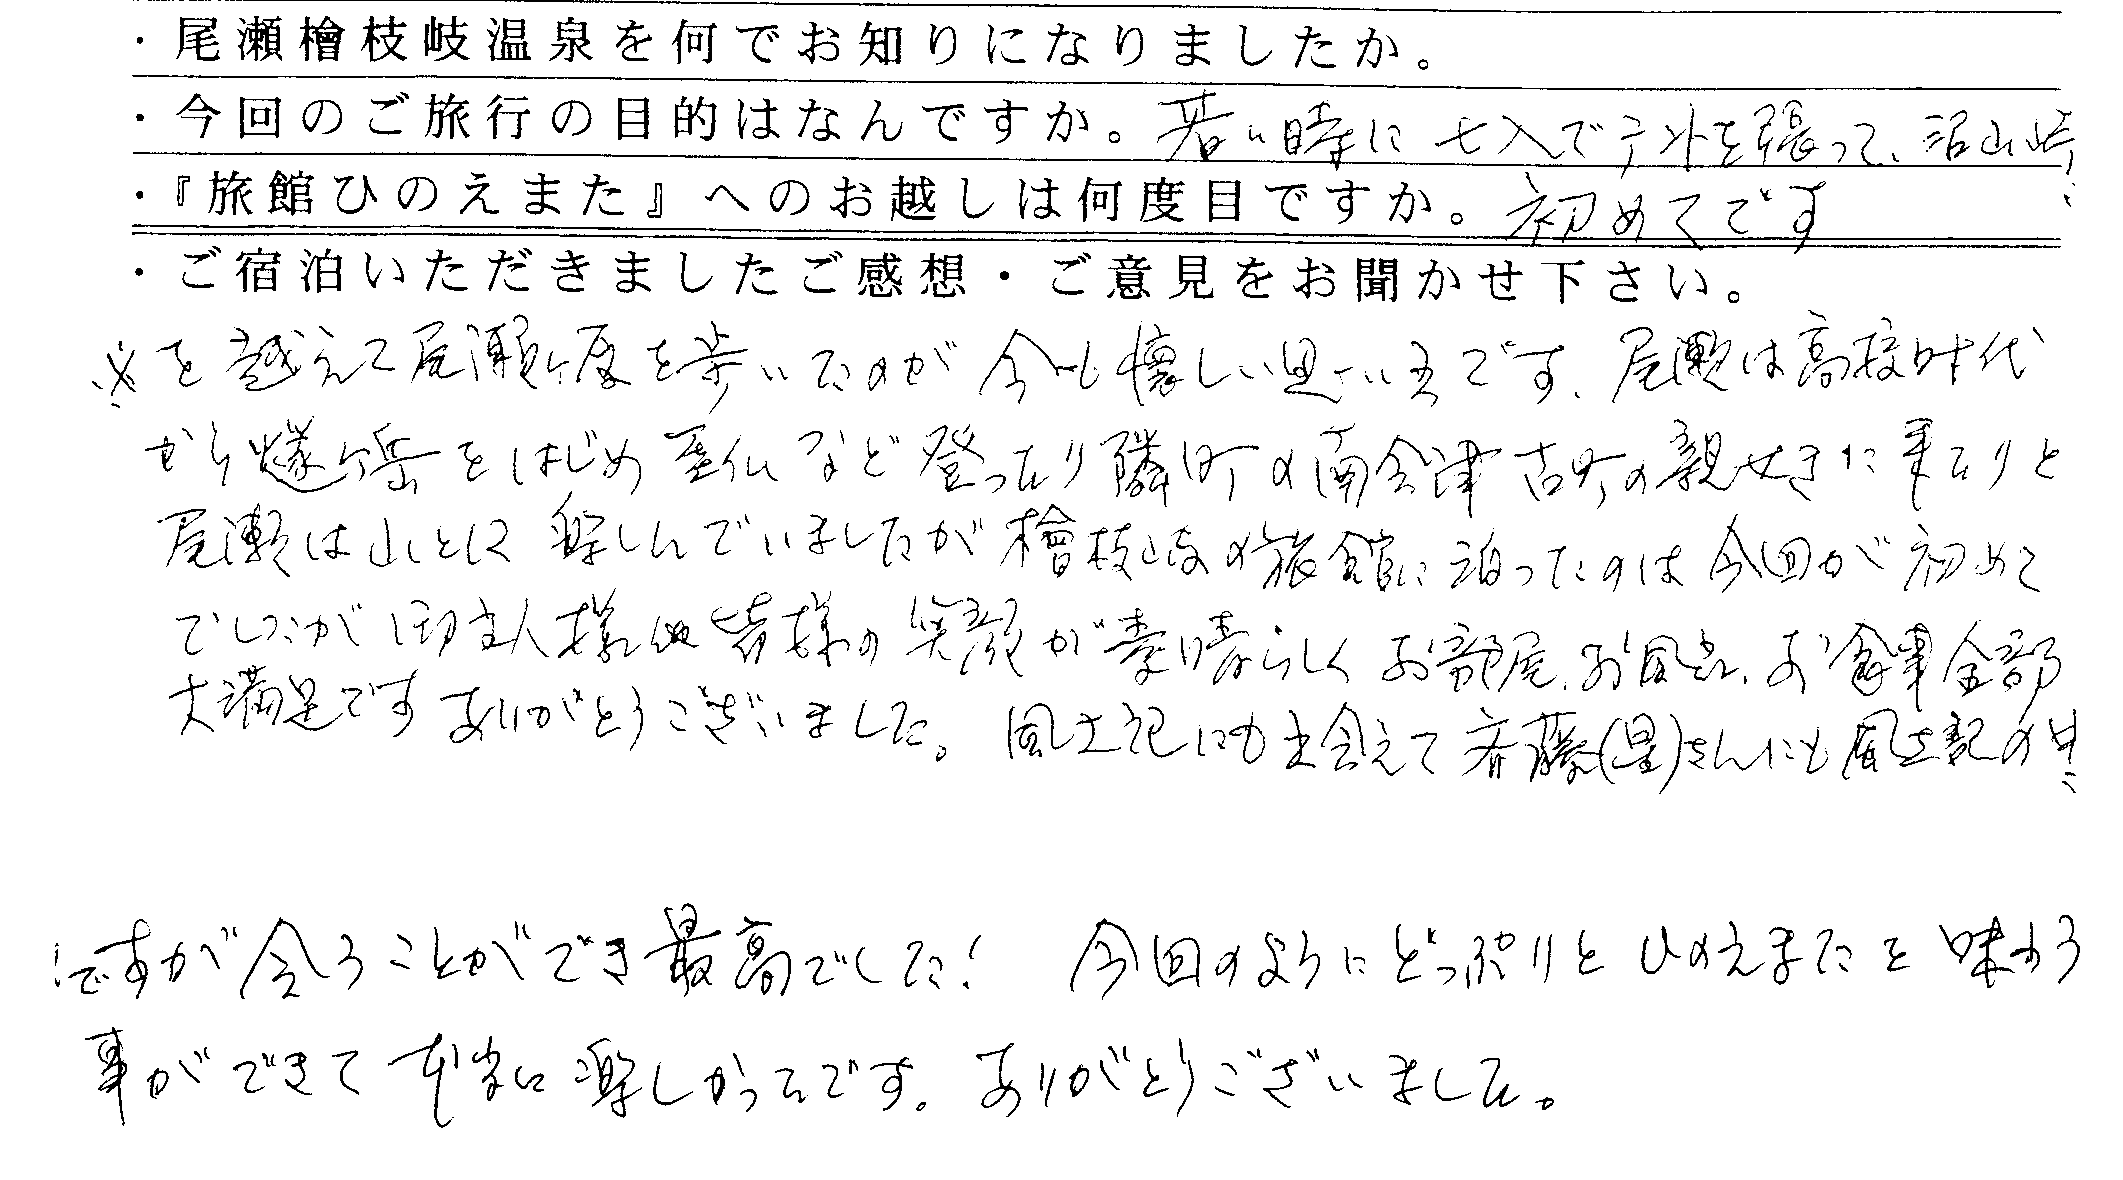 ・尾瀬檜枝岐温泉を何でお知りになりましたか。
・今回のご旅行の目的はなんですか。若い時に七入でテントを張って、沼山峠
・『旅館ひのえまた』へのお越しは何度目ですか。初めてです
・ご宿泊いただきましたご感想・ご意見をお聞かせ下さい。
※を越えて尾瀬ヶ原を歩いたのが今も懐しい思い出です、尾瀬は高校時代
から燧ヶ岳をはじめ至仏など登ったり隣町の南会津古町の親せきに来たりと
尾瀬は山とに楽しんでいましたが檜枝岐の旅館に泊ったのは今回が初めて
でしたが御主人様他皆様の笑顔が素晴らしくお部屋、お風呂、お食事全部
大満足ですありがとうございました。風土記にも出会えて斉藤(星)さんにも風土記の
ですが会うことができ最高でした! 今回のようにどっぷりとひのえまたを味わう
事ができて本当に楽しかったです。ありがとうございました。